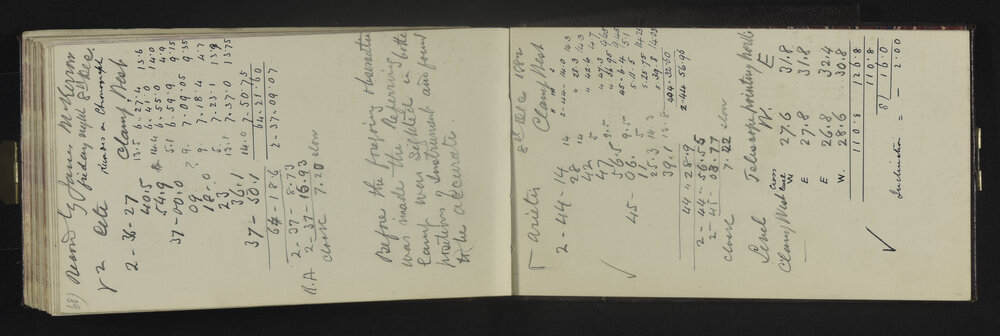 68) Record by James McKerrow
Friday night 8th Dec.
γ 2 Ceti
Record on Chronograph
Clamp West
2-36-27 13.5 6.27.4 13.6
40.5 6.41.0 14.0
54.9 14.4 6.55.0 4.9
37-00.0 5.1 6.59.9 9.15
09 ? 9. 7.09.05 9.35
18.0 9 7.18.4 4.7
23 5 7.23.1 13.9
36.1 13.1 7.37.0 13.75
37-50.1 14.0 7.50.75
64.18.6 64.21.60
2-37-8.73 2.37.09.07
R.A 2-37-16.93
Clock 7.20 slow
Before the foregoing observation
was made the Referring bottle
lamp was sighted in both
positions of Instrument and found
to be accurate.
Arietis 8th Dec 1882
Clamp West
2-44-14 2-44-14.0 14.3
28 14 28.3 14.3
42 14 42.6 4.7
47 5 47.3 9.65
56.5 9.5 56.95 9.45
45-06. 9.5 45-6.4 5.1
11. 5 11.5 14.25
25.3 14.3 25.75 14.05
39.1 13.8 39.8
44 28.9 404-32.60
2-44-56.55 2.444 56.96
2-45-03.77
clock 7.22 slow
Level Telescope pointing north
Clamp West
Cross level W. E
W 27.6 31.8
E 27.8 31.8
E 26.8 32.4
W. 28.6 30.8
110.8 126.8
110.8
8) 16.0
Inclination = = 2.00